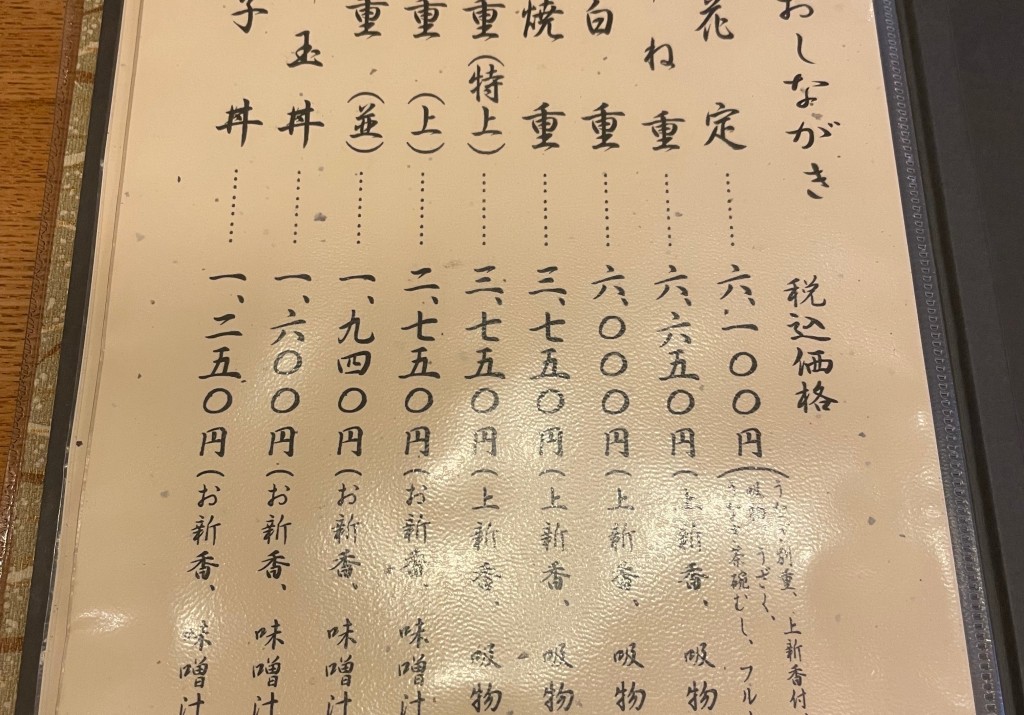 おしながき 税込価格
花定………六、一〇〇円(うなぎ別重、上新香付、
吸物、うざく、
うなぎ茶碗むし、フル
ね重………六、六五〇円(上新香、吸物
白重………六、〇〇〇円(上新香、吸物
焼重………三、七五〇円(上新香、吸物
重(特上)………三、七五〇円(上新香、吸物
重(上)………二、七五〇円(お新香、味噌汁
重(並)………一、九四〇円(お新香、味噌汁
玉丼………一、六〇〇円(お新香、味噌汁
子丼………一、二五〇円(お新香、味噌汁